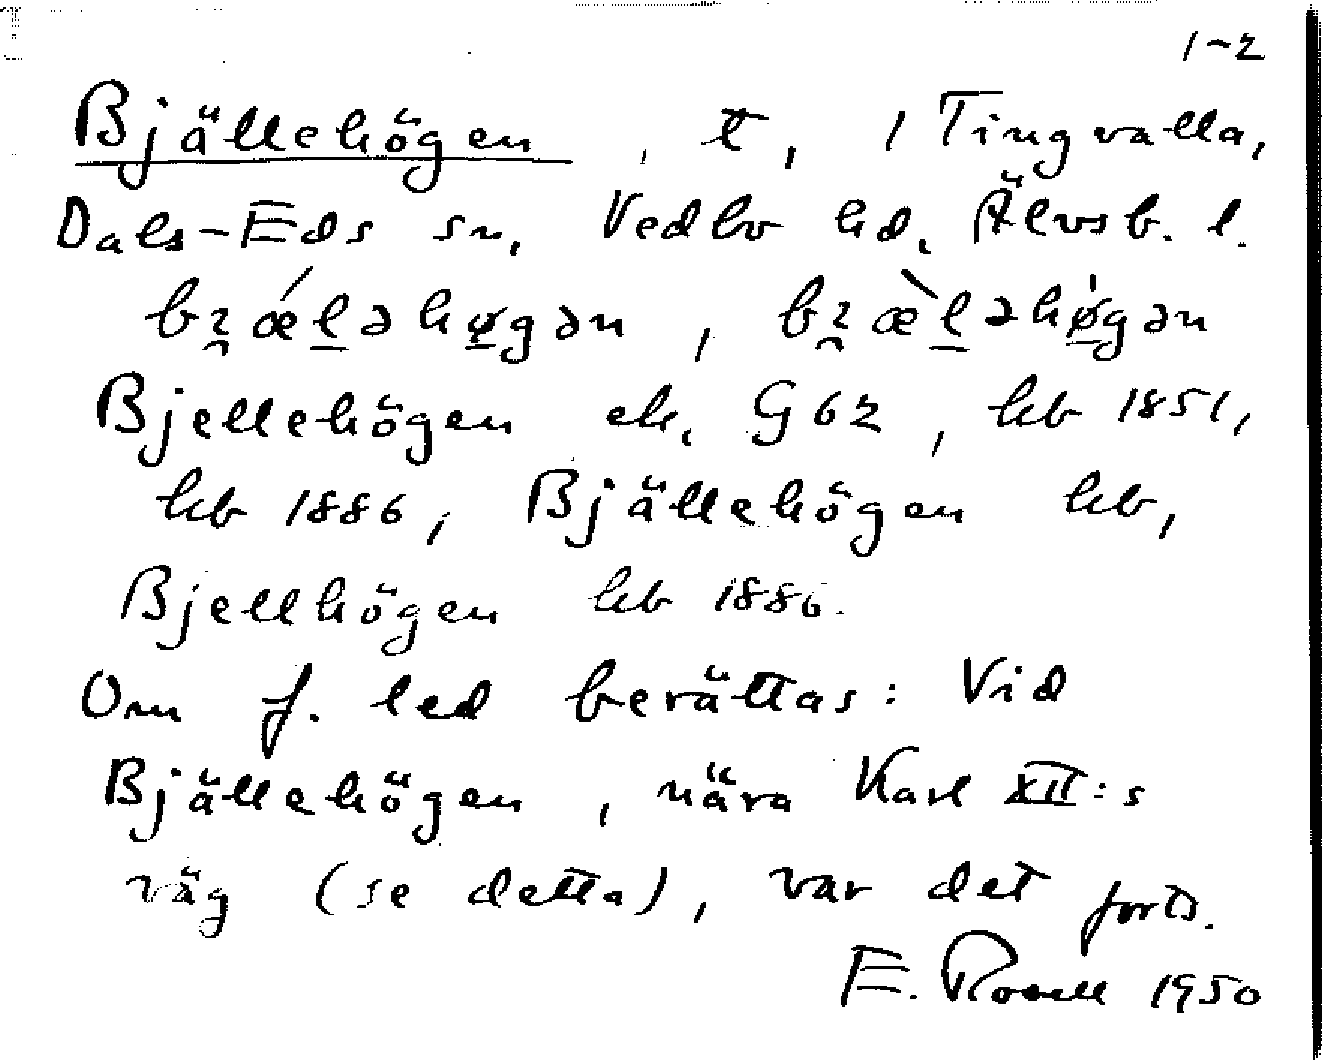 1-2
Bjällehögen, t, i Tingvalla,
Dals-Eds sn, Vedbo hd, Älvsb. l.
Bjellehögen ek, G62, hb 1851,
hb 1886, Bjällehögen hb,
Bjellhögen hb 1886.
Om f. led berättas: Vid
Bjällehögen, nära Karl XII:s
väg (se detta), var det forts.
E. Rosell 1950